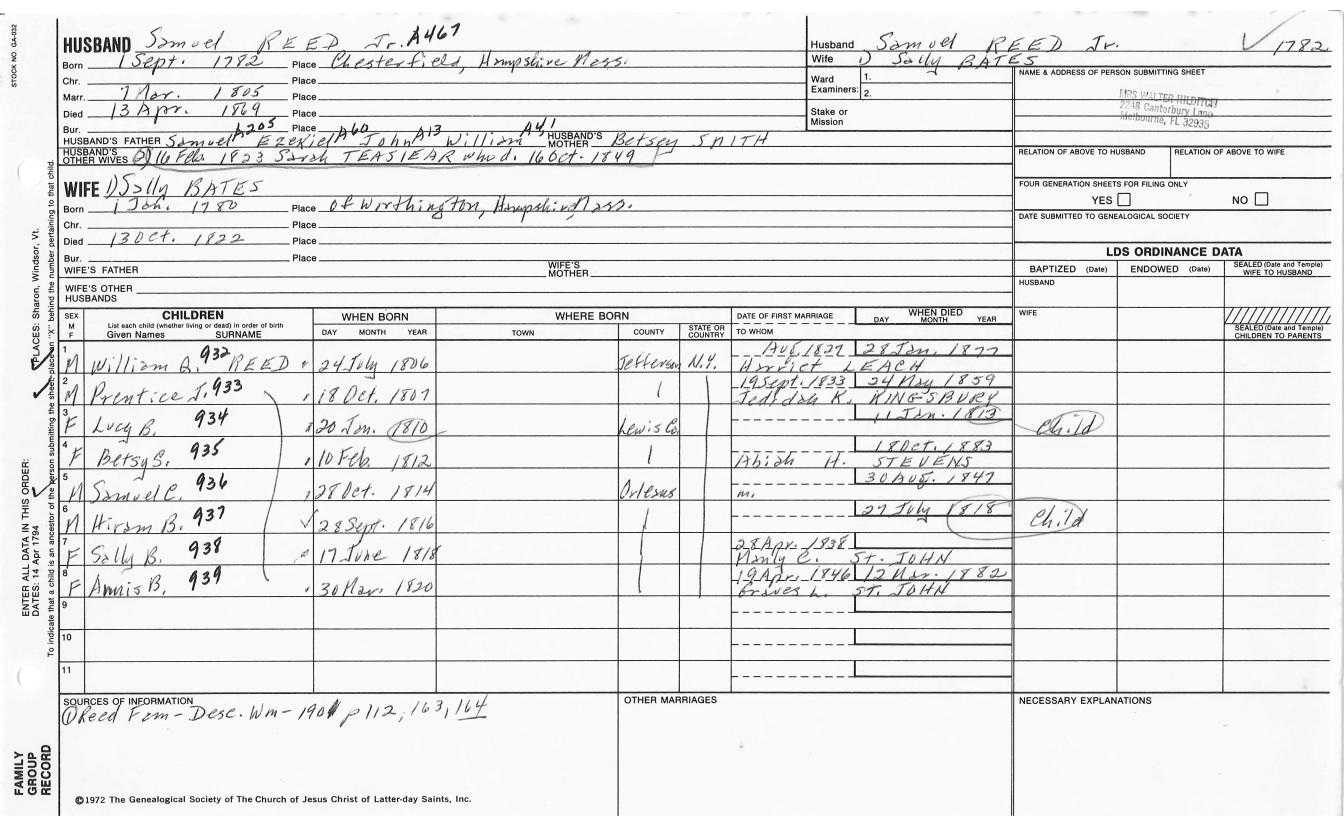 STOCK NO. GA-032
HUSBAND Samuel REED Jr. A467
Born 1 Sept. 1782 Place Chesterfield, Hampshire Mass.
Chr. Place
Marr. 7 Mar. 1805 Place
Died 13 Apr. 1869 Place
Bur. Place
A205 A60 A13 A41
HUSBAND'S FATHER Samuel Ezekiel John William HUSBAND'S MOTHER Betsey SMITH
HUSBAND'S OTHER WIVES (2) 16 Feb. 1823 Sarah TEASIEAR who d. 16 Oct. 1849
Husband Samuel REED Jr. 1782
Wife 1) Sally BATES
Ward Examiners: 1.
2.
Stake or Mission
NAME & ADDRESS OF PERSON SUBMITTING SHEET
MRS WALTER HILDITCH
2248 Canterbury Lane
Melbourne, FL 32935
RELATION OF ABOVE TO HUSBAND RELATION OF ABOVE TO WIFE
FOUR GENERATION SHEETS FOR FILING ONLY
YES NO
DATE SUBMITTED TO GENEALOGICAL SOCIETY
WIFE 1) Sally BATES
Born 1 Jan. 1780 Place of Worthington, Hampshire, Mass.
Chr. Place
Died 13 Oct. 1822 Place
Bur. Place
WIFE'S FATHER WIFE'S MOTHER
WIFE'S OTHER HUSBANDS
LDS ORDINANCE DATA
BAPTIZED (Date) ENDOWED (Date) SEALED (Date and Temple) WIFE TO HUSBAND
HUSBAND
WIFE
SEALED (Date and Temple) CHILDREN TO PARENTS
SEX M F CHILDREN List each child (whether living or dead) in order of birth Given Names SURNAME WHEN BORN DAY MONTH YEAR WHERE BORN TOWN COUNTY STATE OR COUNTRY DATE OF FIRST MARRIAGE TO WHOM WHEN DIED DAY MONTH YEAR
1 Aug. 1827 28 Jan. 1877
M William Q. 932 REED 24 July 1806 Jefferson N.Y. Harriet LEACH
2 19 Sept. 1833 24 May 1859
M Prentice J. 933 18 Oct. 1807 Jedidah K. KINGSBURY
3 11 Jan. 1813
F Lucy B. 934 20 Jan. 1810 Lewis Co. Child
4 18 Oct. 1883
F Betsy S. 935 10 Feb. 1812 Abiah H. STEVENS
5 30 Aug. 1847
M Samuel C. 936 28 Oct. 1814 Orleans m.
6 27 July 1818
M Hiram B. 937 28 Sept. 1816 Child
7 28 Apr. 1838
F Sally B. 938 17 June 1818 Manly C. ST. JOHN
8 19 Apr. 1846 12 Mar. 1882
F Annis B. 939 30 Mar. 1820 Graves L. ST. JOHN
9
10
11
SOURCES OF INFORMATION
(1) Reed Fam - Desc. Wm - 1901 p 112, 163, 164
OTHER MARRIAGES
NECESSARY EXPLANATIONS
©1972 The Genealogical Society of The Church of Jesus Christ of Latter-day Saints, Inc.
ENTER ALL DATA IN THIS ORDER:
DATES: 14 Apr 1794 PLACES: Sharon, Windsor, Vt.
To indicate that a child is an ancestor of the person submitting the sheet, place an "X" behind the number pertaining to that child.
FAMILY GROUP RECORD